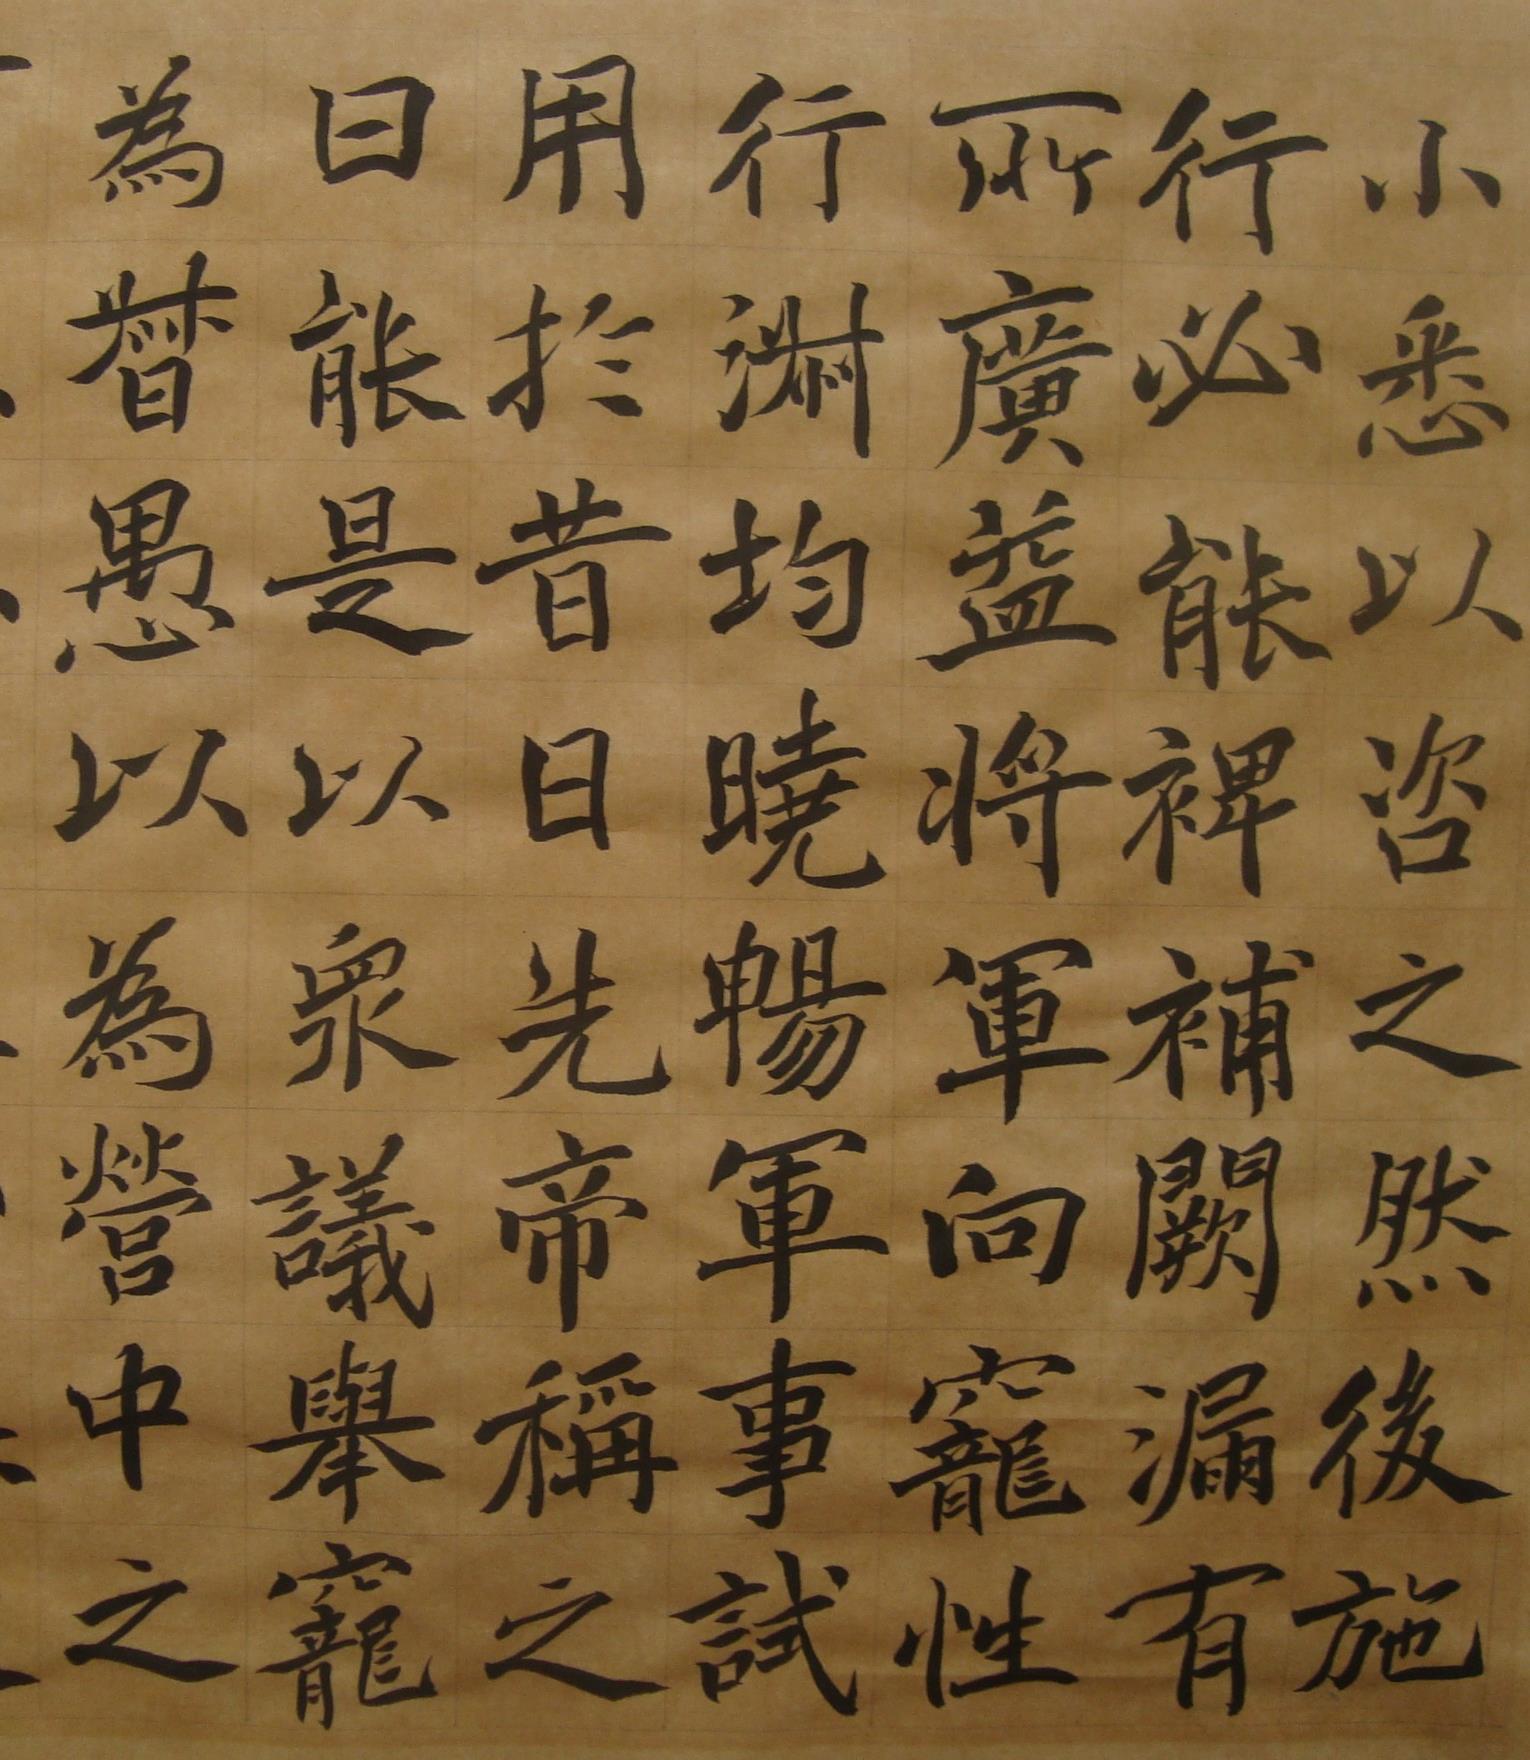 小悉以咨之然後施
行必能裨補闕漏有
所廣益將軍向寵性
行淑均曉暢軍事試
用於昔日先帝稱之
曰能是以眾議舉寵
為督愚以為營中之